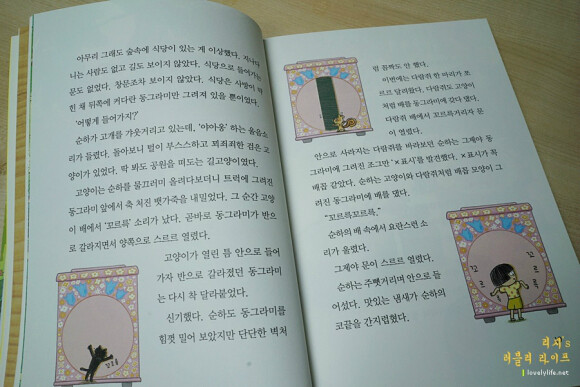 아무리 그래도 숲속에 식당이 있는 게 이상했다. 지나다
니는 사람도 없고 길도 보이지 않았다. 식당으로 들어가는
문도 없었다. 창문조차 보이지 않았다. 식당은 사방이 막
힌 채 뒤쪽에 커다란 동그라미만 그려져 있을 뿐이었다.
'어떻게 들어가지?'
순하가 고개를 갸웃거리고 있는데, '야아옹' 하는 울음소
리가 들렸다. 돌아보니 털이 부스스하고 꾀죄죄한 검은 고
양이가 있었다. 딱 봐도 공원을 떠도는 길고양이였다.
고양이는 순하를 물끄러미 올려다보더니 트럭에 그려진
동그라미 앞에서 축 처진 뱃가죽을 내밀었다. 그 순간 고양
이 배에서 '꼬르륵' 소리가 났다. 곧바로 동그라미가 반으
로 갈라지면서 양쪽으로 스르르 열렸다.
고양이가 열린 틈 안으로 들어
가자 반으로 갈라졌던 동그라미
는 다시 착 달라붙었다.
신기했다. 순하도 동그라미를
힘껏 밀어 보았지만 단단한 벽처
꼬르륵
럼 꿈쩍도 안 했다.
이번에는 다람쥐 한 마리가 쪼
르르 달려왔다. 다람쥐도 고양이
처럼 배를 동그라미에 갖다 댔다.
다람쥐 배에서 꼬르르거리자 문
이 열렸다.
안으로 사라지는 다람쥐를 바라보던 순하는 그제야 동
그라미에 그려진 조그만 '×표시'를 발견했다. ×표시가 꼭
배꼽 같았다. 순하는 고양이와 다람쥐처럼 배꼽 모양이 그
려진 동그라미에 배를 댔다.
"꼬르륵꼬르륵."
순하의 배 속에서 요란스런 소
리가 울렸다.
그제야 문이 스르르 열렸다.
순하는 주뼛거리며 안으로 들
어섰다. 맛있는 냄새가 순하의
코끝을 간지럽혔다.
꼬르륵
꼬르륵
리자's
러블리 라이프
lovelylife.net